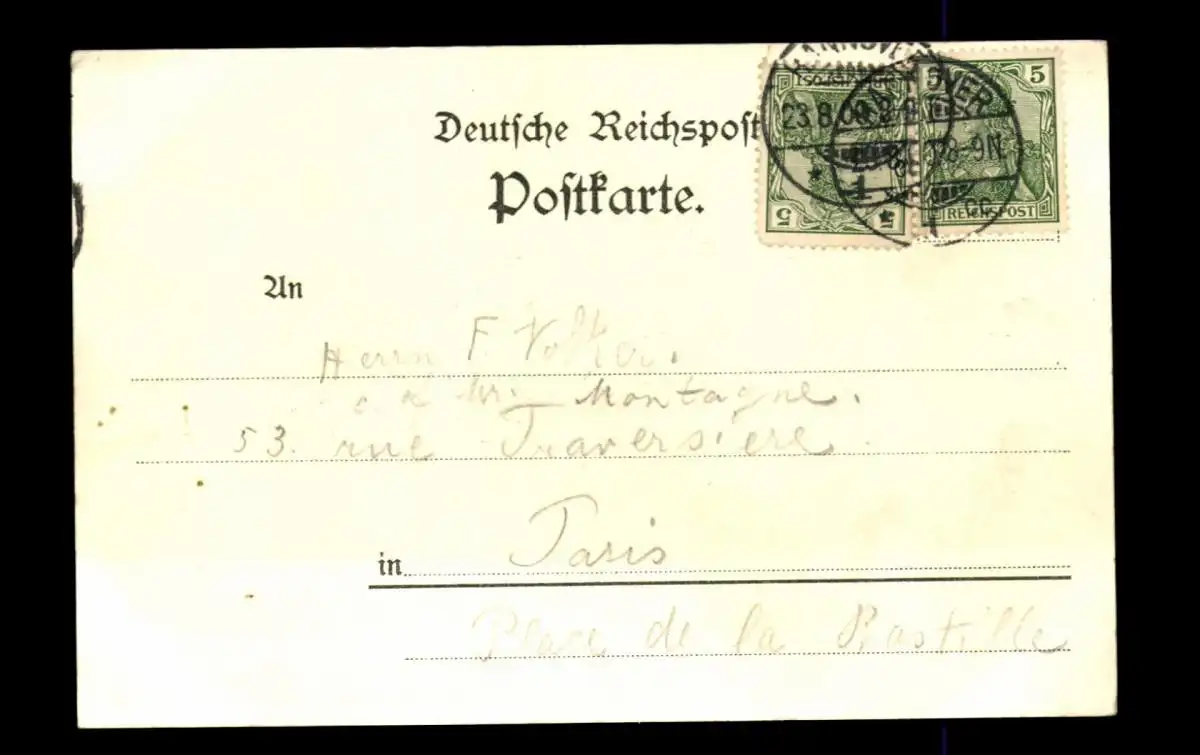 Deutsche Reichspost
Postkarte.
HANNOVER
23.8.00. 8-9N
HANNOVER
8-9N
5 5
REICHSPOST
5 5
REICHSPOST
An
Herrn F. Volker.
c. a Mr. Montagne.
53. rue Traversière.
in Paris
Place de la Bastille